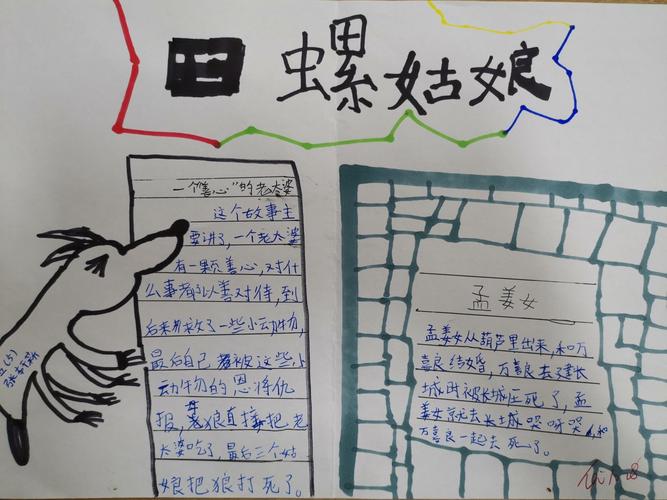 田螺姑娘
一个"善心"的老太婆
这个故事主
要讲了，一个老太婆
有一颗善心，对什
么事都以善对待，到
后来并救了一些小动物，
最后自己却被这些小
动物的恩将仇
报，老狼直接把老
太婆吃了，最后三个姑
娘把狼打死了。
孟姜女
孟姜女从葫芦里出来，和万
喜良结婚，万喜良去了建长
城时被长城压死了，孟
姜女就去长城哭呀哭，和
万喜良一起去死了。
五(5)